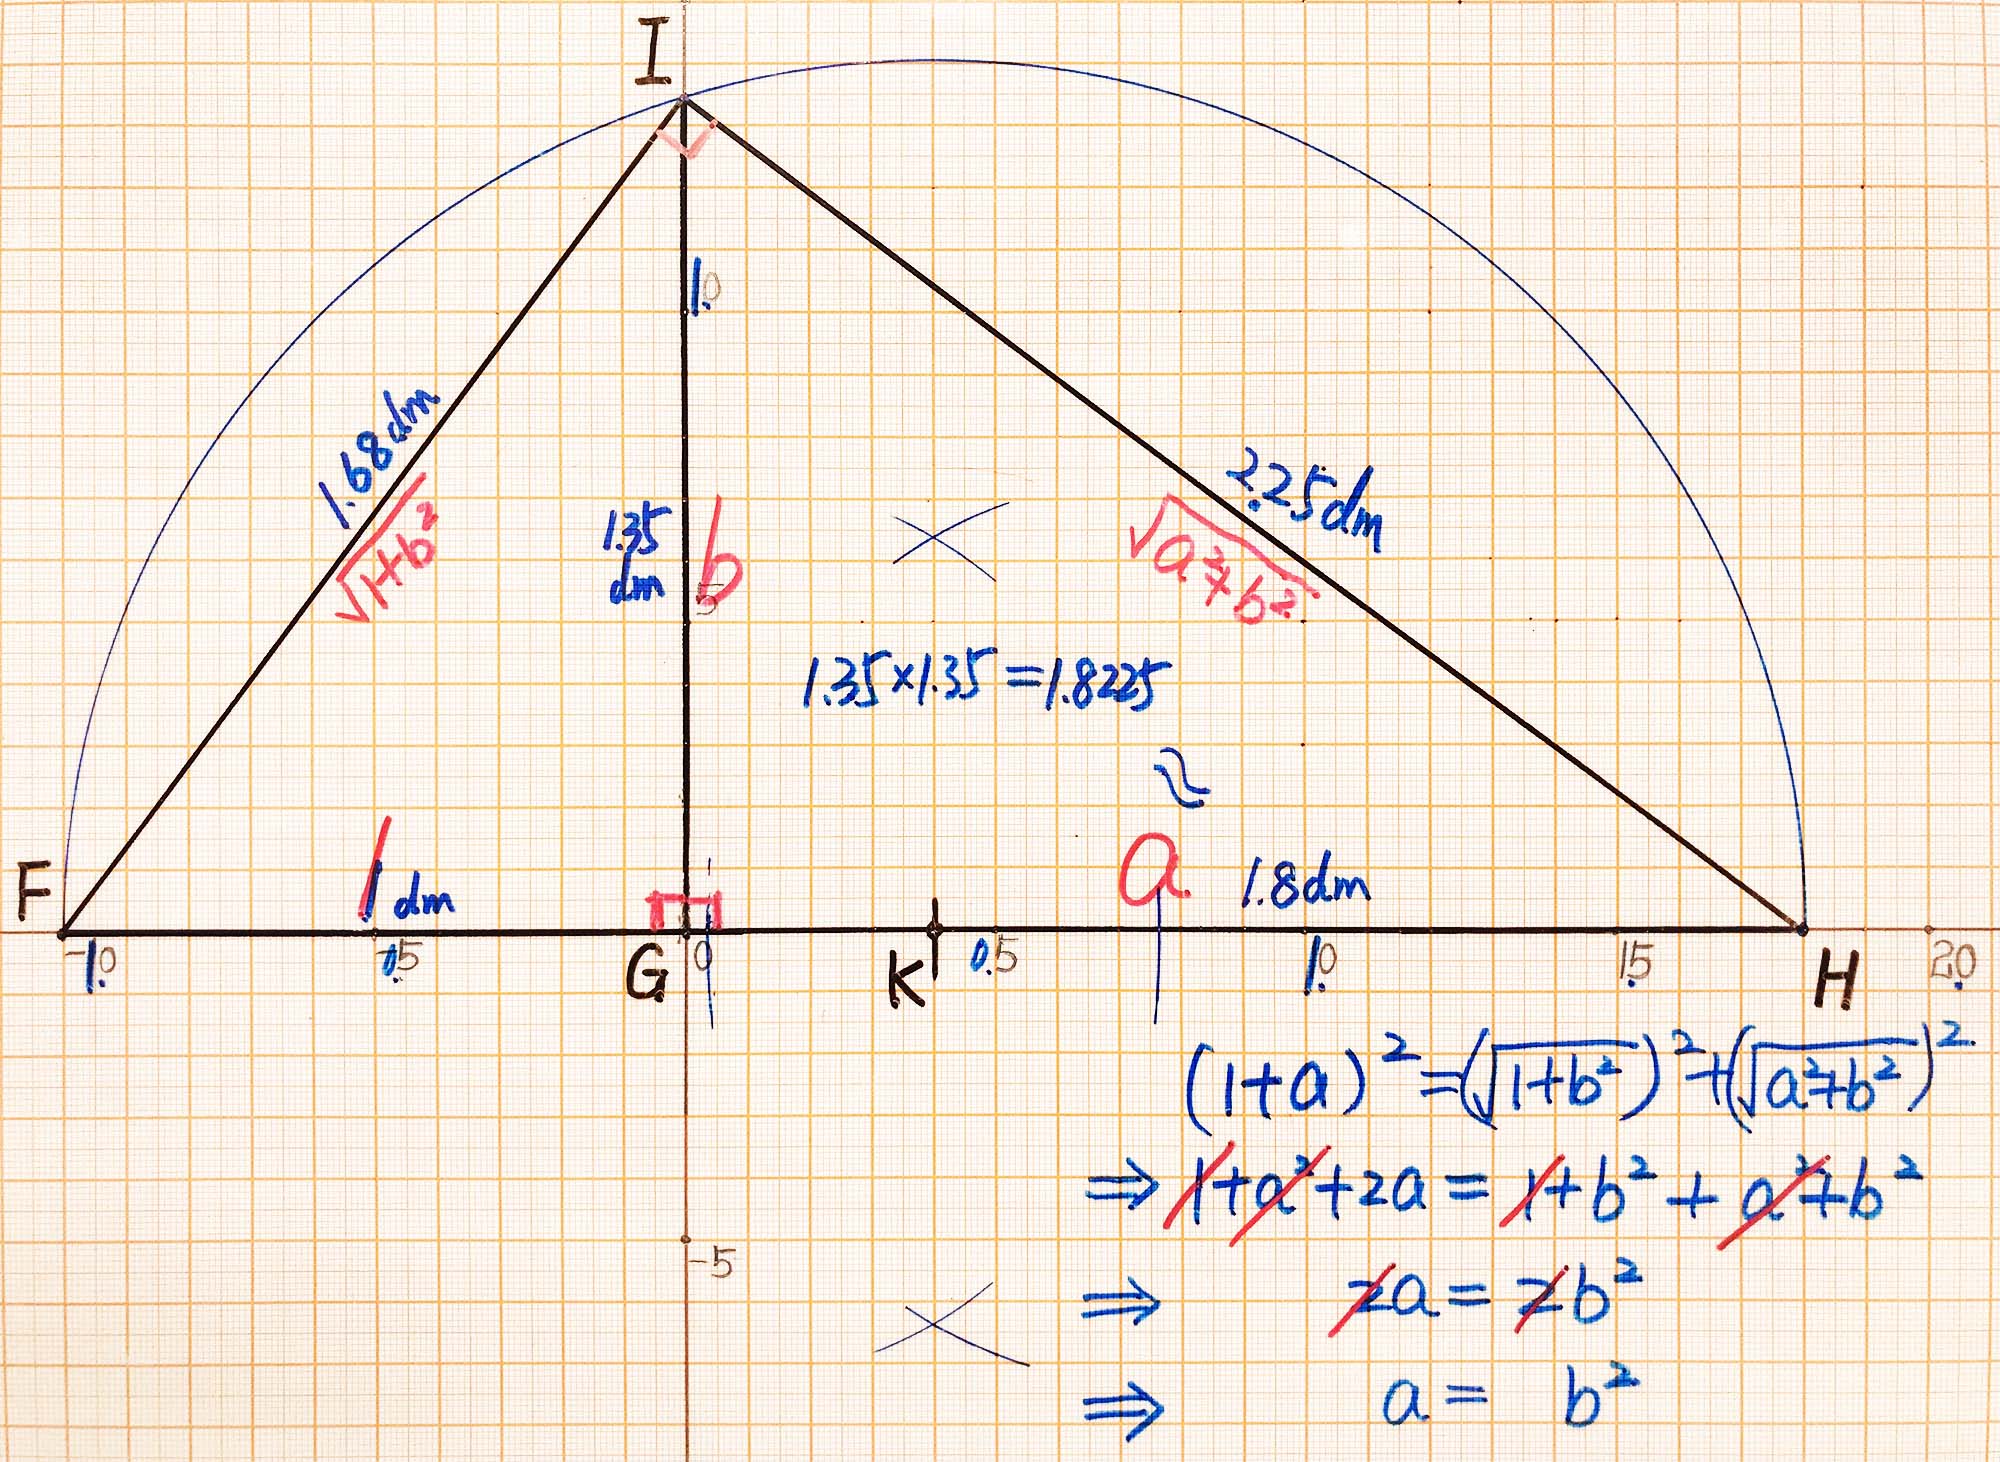 I
1.0
1.68dm
√1+b²
1.35
dm
b
5
2.25dm
√a²+b²
1.35×1.35=1.8225
≈
a
1.8dm
F
1 dm
-1.0
-0.5
G
0
K
0.5
1.0
1.5
H
2.0
(1+a)²=(√1+b²)²+(√a²+b²)²
⇒ 1+a²+2a = 1+b²+a²+b²
-5
⇒ 2a = 2b²
⇒ a = b²